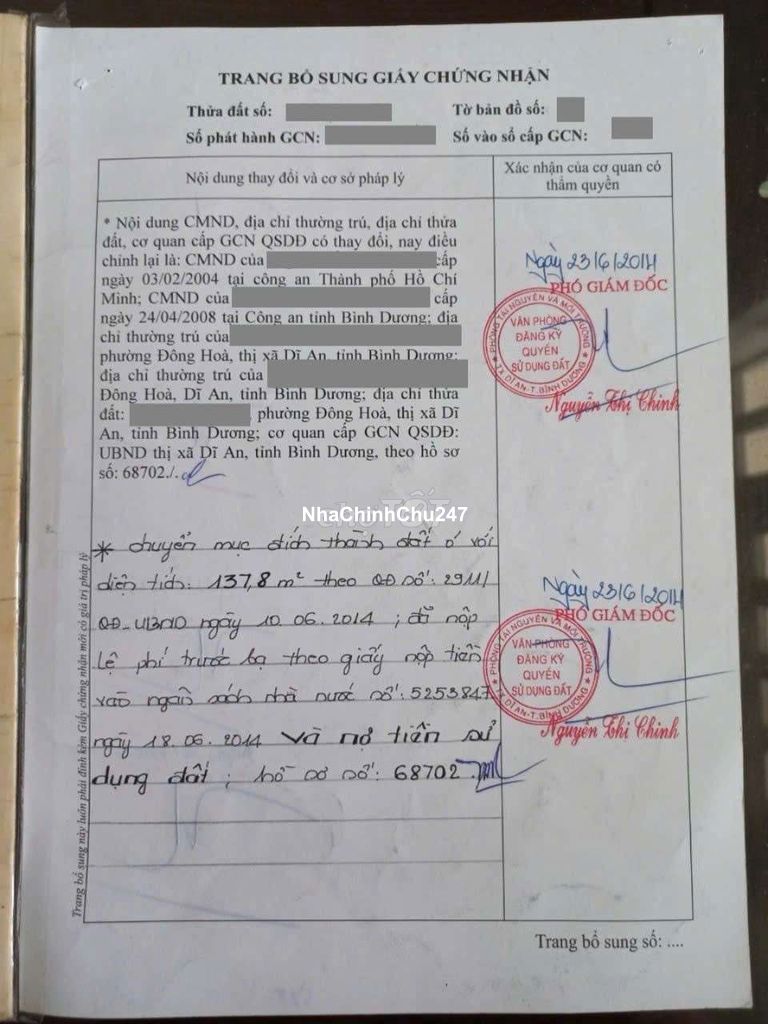 TRANG BỔ SUNG GIẤY CHỨNG NHẬN
Thửa đất số: Tờ bản đồ số:
Số phát hành GCN: Số vào sổ cấp GCN:
Nội dung thay đổi và cơ sở pháp lý
Xác nhận của cơ quan có
thẩm quyền
* Nội dung CMND, địa chỉ thường trú, địa chỉ thửa
đất, cơ quan cấp GCN QSDĐ có thay đổi, nay điều
chỉnh lại là: CMND của cấp
ngày 03/02/2004 tại công an Thành phố Hồ Chí
Minh; CMND của cấp
ngày 24/04/2008 tại Công an tỉnh Bình Dương; địa
chỉ thường trú của
phường Đông Hoà, thị xã Dĩ An, tỉnh Bình Dương;
địa chỉ thường trú của
Đông Hoà, Dĩ An, tỉnh Bình Dương; địa chỉ thửa
đất: , phường Đông Hoà, thị xã Dĩ
An, tỉnh Bình Dương; cơ quan cấp GCN QSDĐ:
UBND thị xã Dĩ An, tỉnh Bình Dương, theo hồ sơ
số: 68702./.
Ngày 23/6/2014
PHÓ GIÁM ĐỐC
PHÒNG TÀI NGUYÊN VÀ MÔI TRƯỜNG
VĂN PHÒNG
ĐĂNG KÝ
QUYỀN
SỬ DỤNG ĐẤT
TX DĨ AN-T.BÌNH DƯƠNG
Nguyễn Thị Chinh
NhaChinhChu247
* chuyển mục đích thành đất ở với
diện tích: 137,8 m² theo QĐ số: 2911/
QĐ-UBND ngày 10.06.2014; đã nộp
Lệ phí trước bạ theo giấy nộp tiền
vào ngân sách nhà nước số: 5253847
ngày 18.06.2014 Và nợ tiền sử
dụng đất; hồ sơ số: 68702
Ngày 23/6/2014
PHÓ GIÁM ĐỐC
PHÒNG TÀI NGUYÊN VÀ MÔI TRƯỜNG
VĂN PHÒNG
ĐĂNG KÝ
QUYỀN
SỬ DỤNG ĐẤT
TX DĨ AN-T.BÌNH DƯƠNG
Nguyễn Thị Chinh
Trang bổ sung này luôn phải đính kèm Giấy chứng nhận mới có giá trị pháp lý
Trang bổ sung số: ....